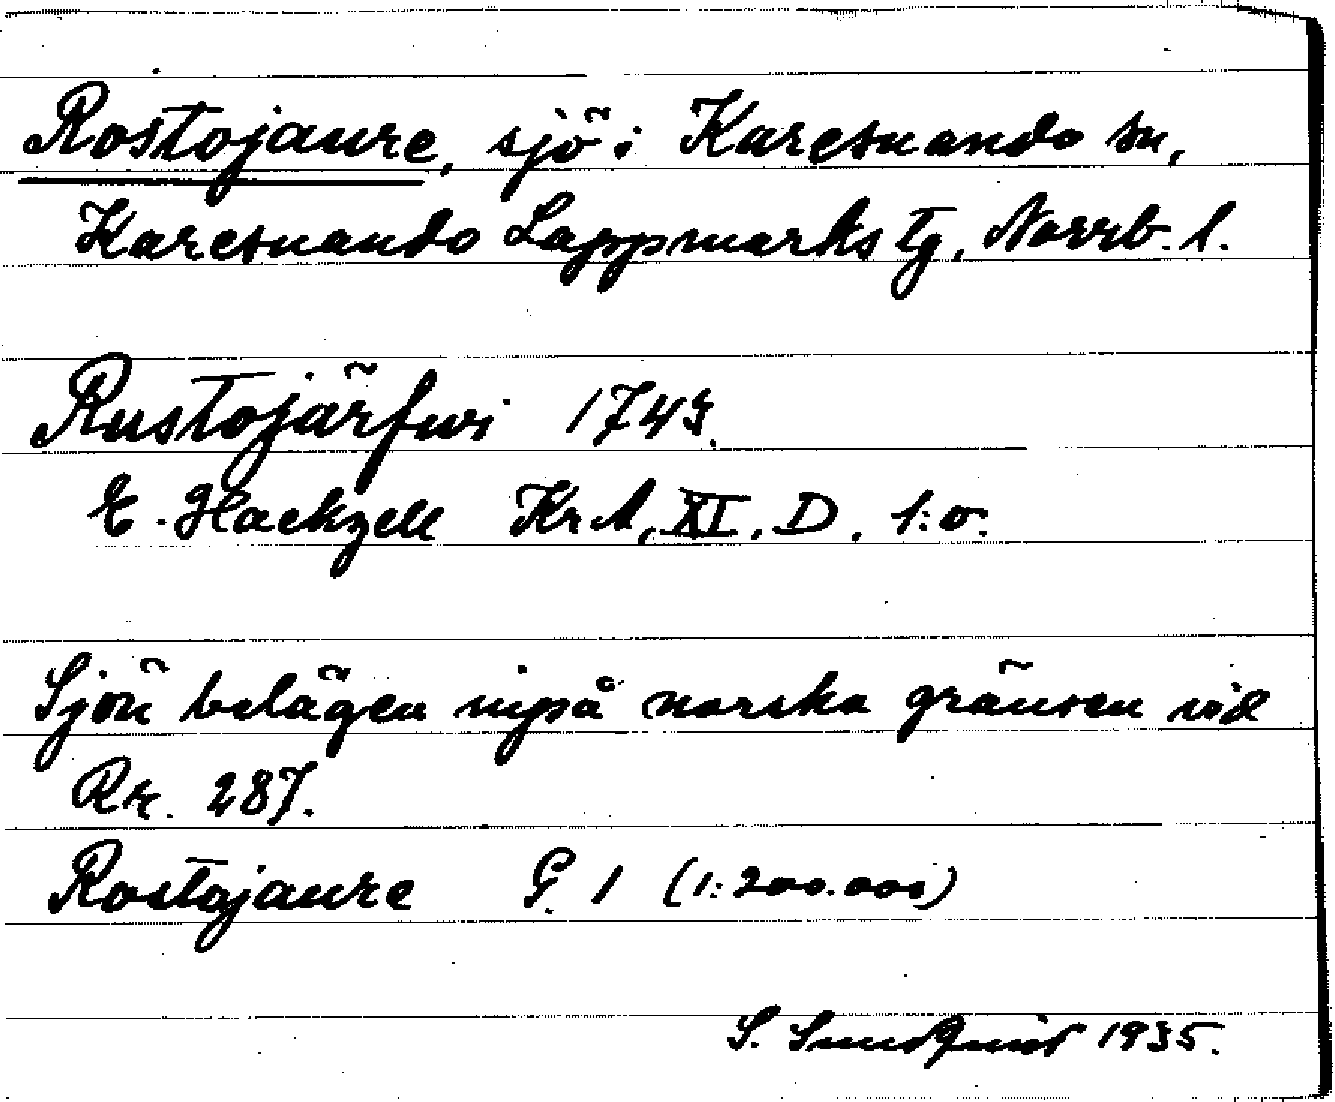 Rostojaure, sjö i Karesuando sn,
Karesuando Lappmarks tg, Norrb. l.
Rustojärfwi 1743.
E. Hackzell KrA, XI, D, 1:o.
Sjön belägen invpå norska gränsen vid
Rr. 287.
Rostojaure G. 1 (1:200.000)
S. Sundquist 1935.